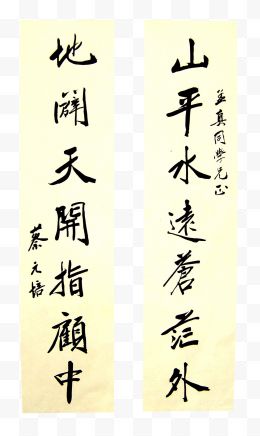 山平水遠蒼茫外
孟真同學兄正
地闢天開指顧中
蔡元培